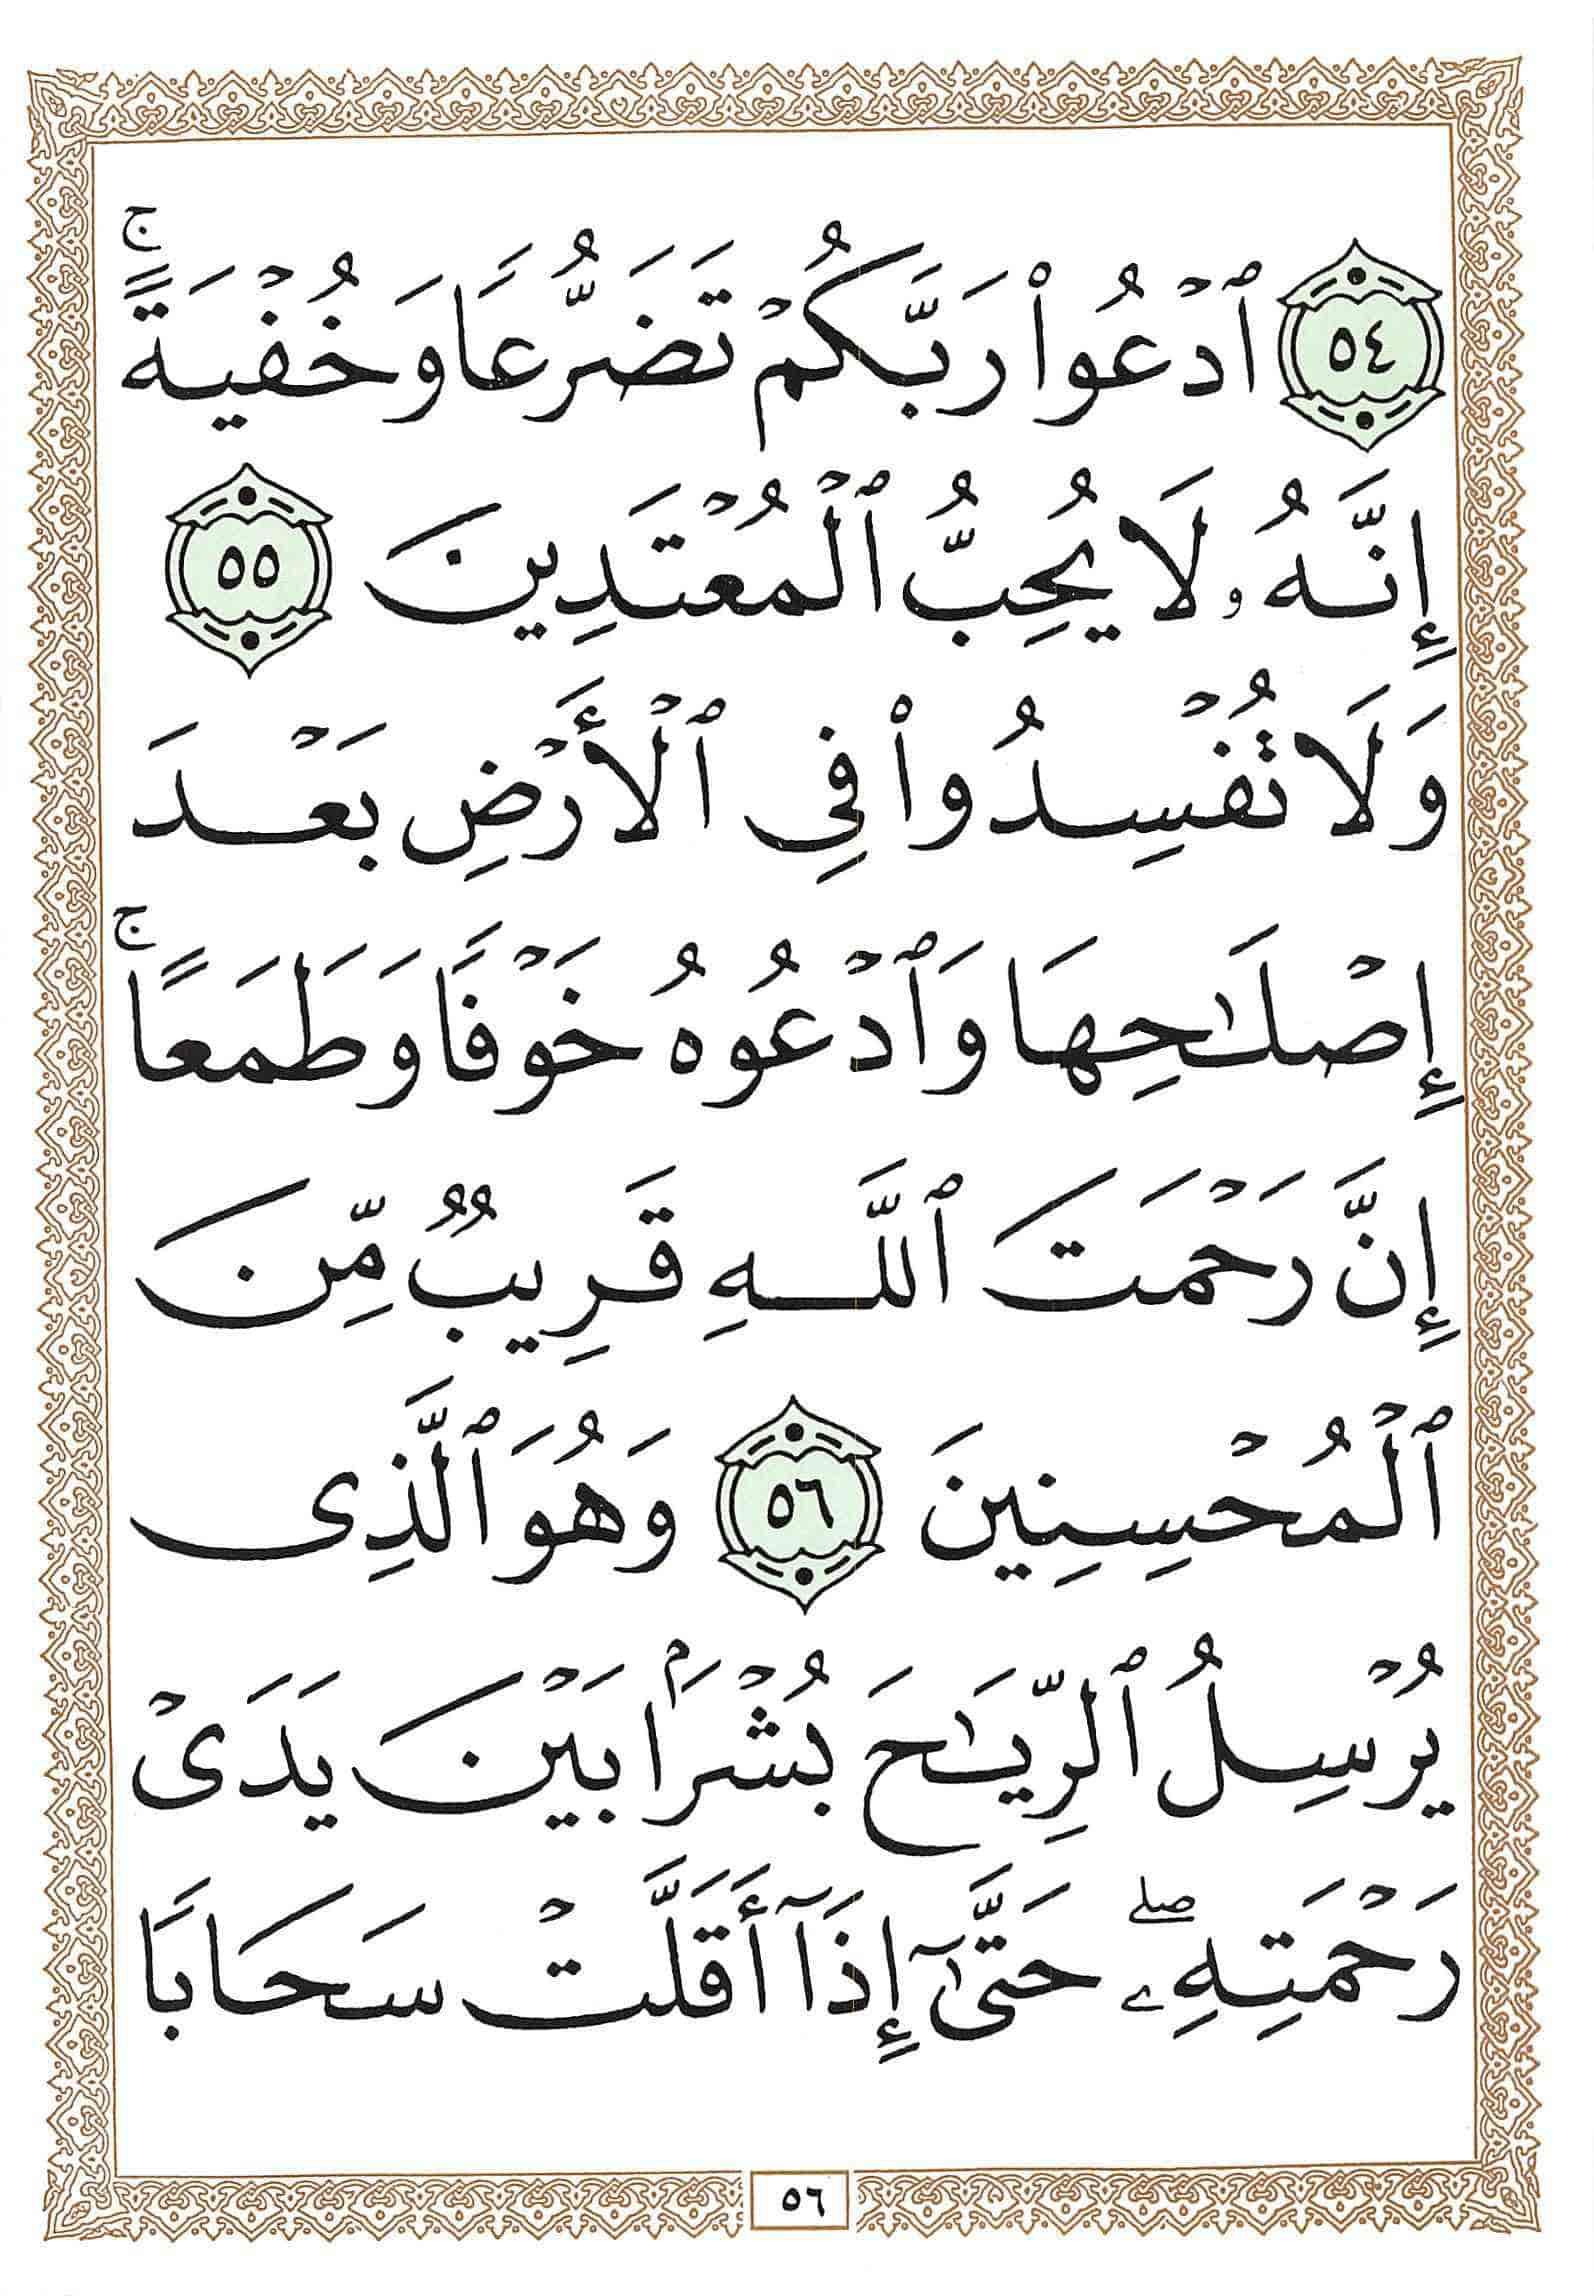 ٥٤ ٱدۡعُواْ رَبَّكُمۡ تَضَرُّعٗا وَخُفۡيَةًۚ
إِنَّهُۥ لَا يُحِبُّ ٱلۡمُعۡتَدِينَ ٥٥
وَلَا تُفۡسِدُواْ فِي ٱلۡأَرۡضِ بَعۡدَ
إِصۡلَٰحِهَا وَٱدۡعُوهُ خَوۡفٗا وَطَمَعًاۚ
إِنَّ رَحۡمَتَ ٱللَّهِ قَرِيبٞ مِّنَ
ٱلۡمُحۡسِنِينَ ٥٦ وَهُوَ ٱلَّذِي
يُرۡسِلُ ٱلرِّيَٰحَ بُشۡرَۢا بَيۡنَ يَدَيۡ
رَحۡمَتِهِۦۖ حَتَّىٰٓ إِذَآ أَقَلَّتۡ سَحَابٗا
٥٦